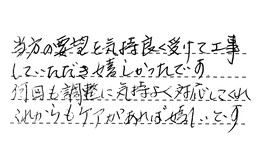 当方の要望を気持良く受けて工事
していただき嬉しかったです
何回も調整に気持よく対応してくれ
これからもケアがあれば嬉しいです